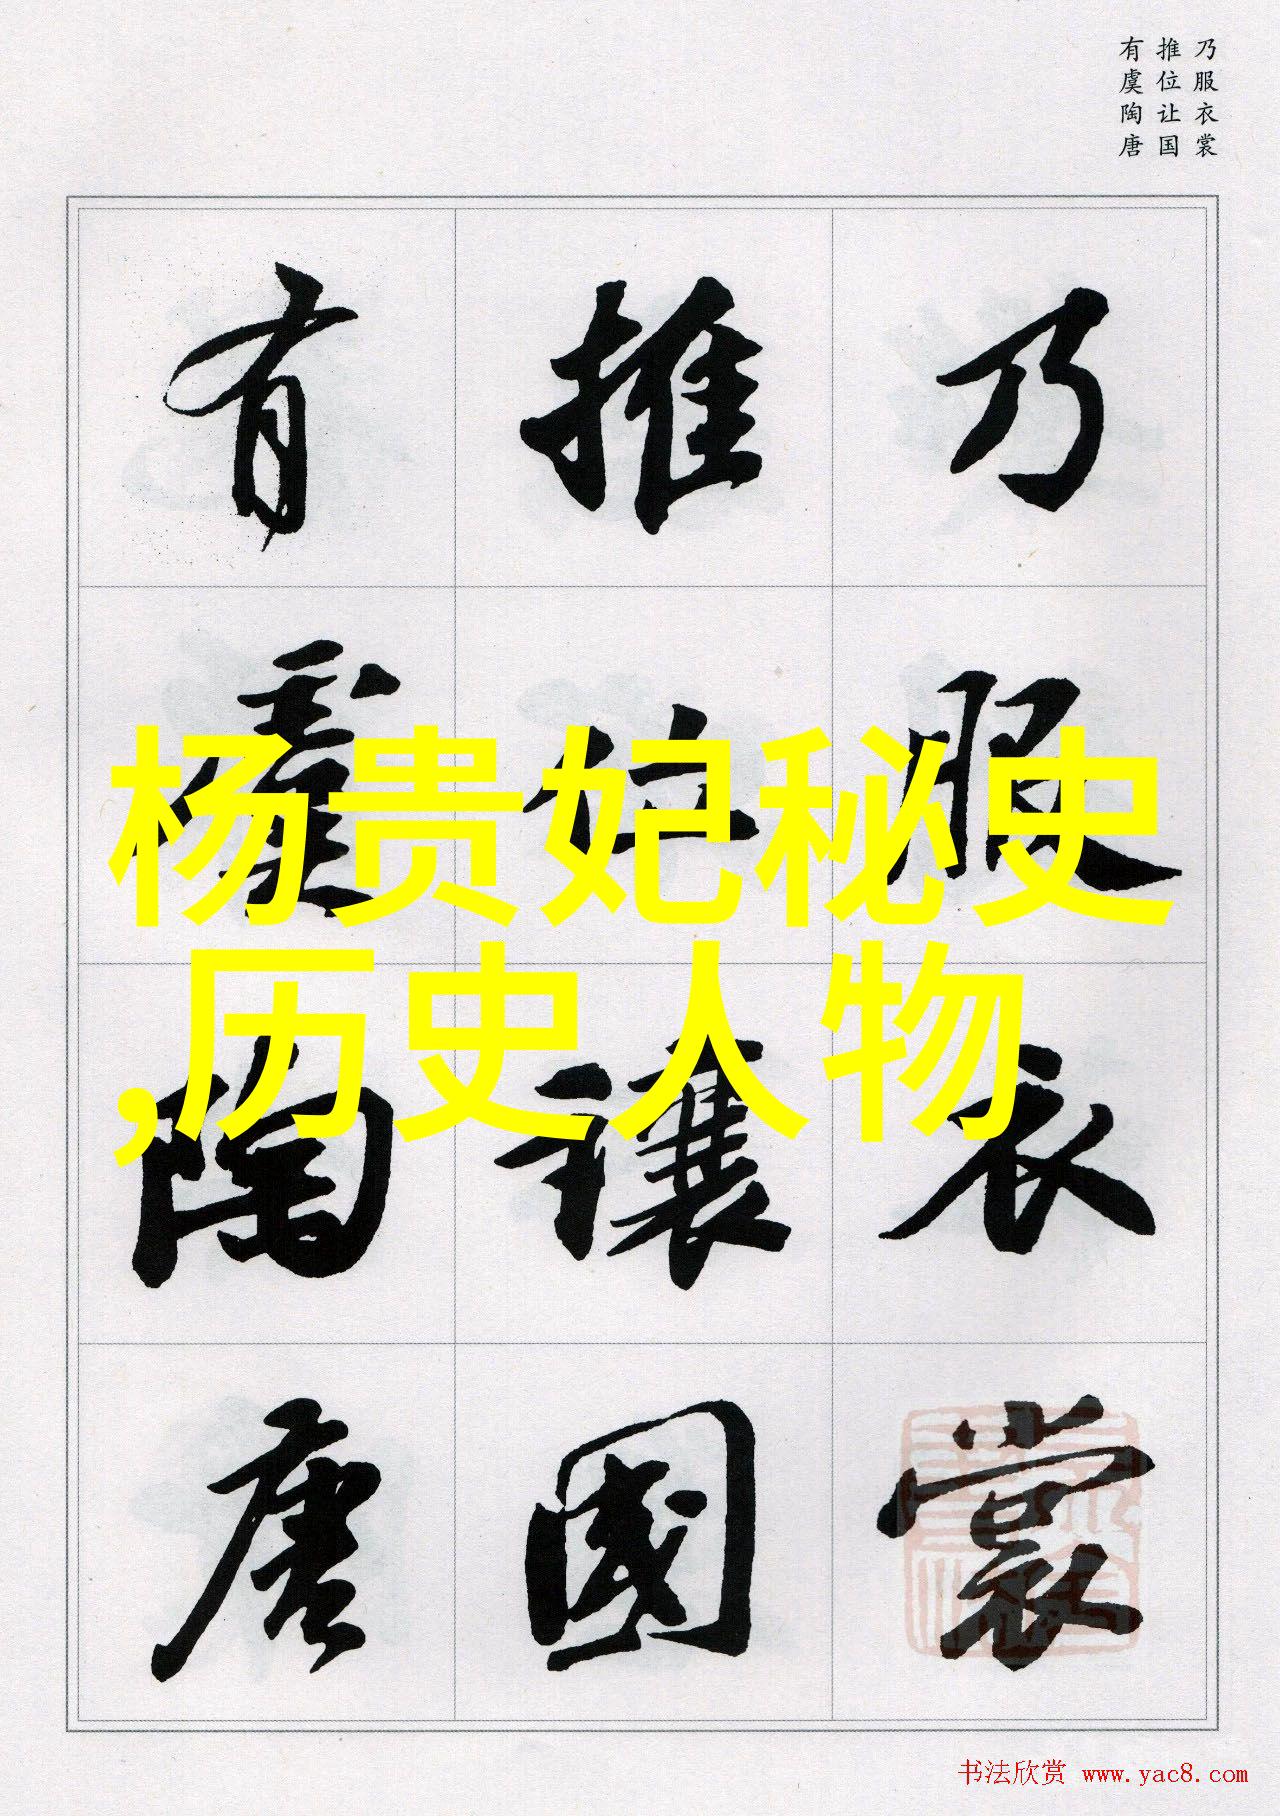 乃服衣裳
推位让国
有虞陶唐
乃服衣裳
推位讓國
有虞陶唐
杨贵妃秘史
,历史人物
书法欣赏 www.yac8.com